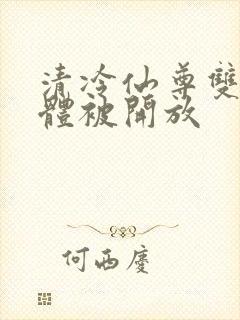 清冷仙尊雙
體被開放
何西慶